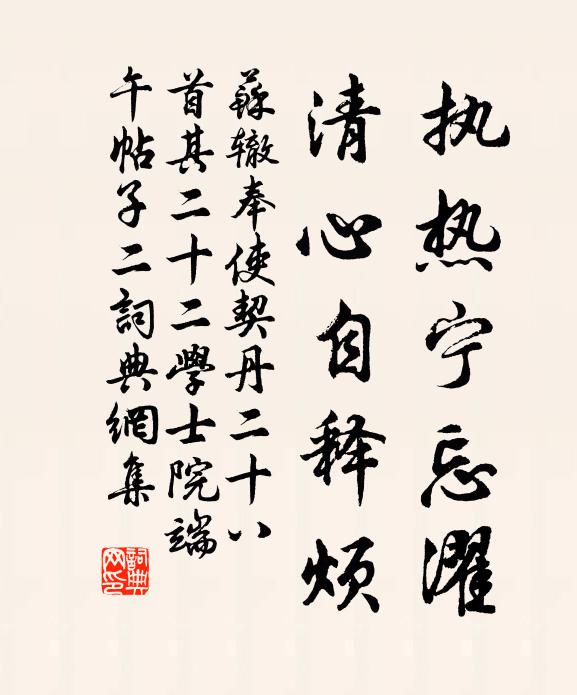 执热宁忘濯
清心自释烦
蘇辙奉使契丹二十八
首其二十二學士院端
午帖子二詞典網集
詞典
网印